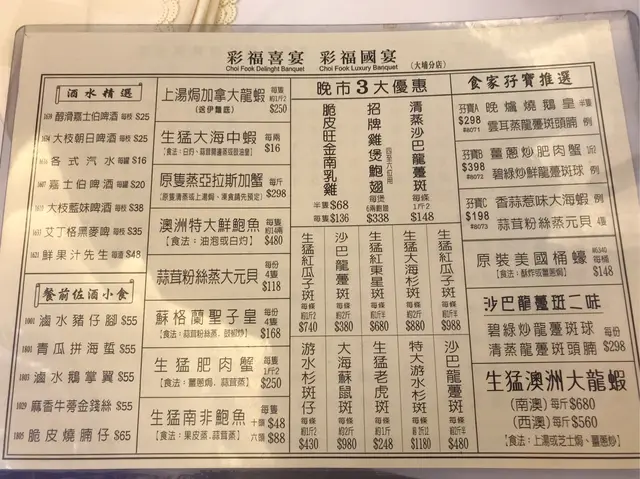 彩福喜宴 彩福國宴 (大埔分店)
Choi Fook Delinght Banquet Choi Fook Luxury Banquet
酒水精選
1659 醇滑嘉士伯啤酒 每枝 $25
大枝朝日啤酒 每枝 $25
各式汽水 每罐 $16
嘉士伯啤酒 每罐 $20
大枝藍妹啤酒 每枝 $38
艾丁格黑麥啤 每枝 $35
鮮果汁先生 每渣 $48
餐前佐酒小食
1001 滷水豬仔腳 $55
青瓜拼海蜇 $55
滷水鵝掌翼 $55
1029 麻香牛蒡金錢絲 $55
1005 脆皮燒腩仔 $65
上湯焗加拿大龍蝦 每隻
(送伊麵底) $250
生猛大海中蝦 每兩
$16
原隻蒸亞拉斯加蟹 每斤
$298
澳洲特大鮮鮑魚 每隻
[食法：油泡或白灼] $480
蒜茸粉絲蒸大元貝 每份
4隻
$118
蘇格蘭聖子皇 每份
4隻
$168
生猛肥肉蟹 每隻
1斤2
[食法：薑蔥焗、蒜茸蒸] $250
生猛南非鮑魚 每隻
十頭 $48
[食法：果皮蒸、蒜茸蒸] 六頭 $88
晚市3大優惠
脆皮旺金南乳雞
半隻 $68
每隻 $136
招牌雞煲鮑翅
每煲
$338
清蒸沙巴龍躉斑
每條
1斤2
$148
生猛紅瓜子斑
$740
沙巴龍躉斑
$380
生猛紅東星斑
$680
生猛大海杉斑
$880
生猛紅瓜子斑
$988
游水杉斑仔
$430
大海蘇鼠斑
$980
生猛老虎斑
$248
特大游水杉斑
$1180
沙巴龍躉斑
$480
食家孖寶推選
孖寶A 晚爐燒鵝皇 半隻
$298
#8071 雲耳蒸龍躉斑頭腩 例
孖寶B 薑蔥炒肥肉蟹
$398
#8072 碧綠炒鮮龍躉斑球 例
孖寶C 香蒜惹味大海蜆 例
$198
#8073 蒜茸粉絲蒸元貝 4隻
原裝美國桶蠔 每桶
[食法：酥炸或薑蔥焗] $148
沙巴龍躉斑二味
碧綠炒龍躉斑球 每份
清蒸龍躉斑頭腩 $298
生猛澳洲大龍蝦
(南澳) 每斤$680
(西澳) 每斤$560
[食法：上湯或芝士焗、薑蔥炒]